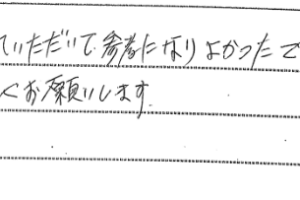 ていただいて参考になりよかったで
くお願いします。